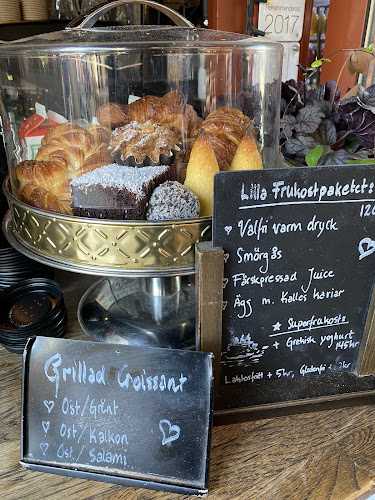 Rekommenderad
2017
Lilla Frukostpaketets
120
Valfri varm dryck
Smörgås
Färskpressad Juice
Ägg m. kalles kaviar
Superfrukost:
+ Grekisk yoghurt
145 kr
Laktosfritt + 5 kr,
Grillad Croissant
Ost/Grönt
Ost/Kalkon
Ost/Salami